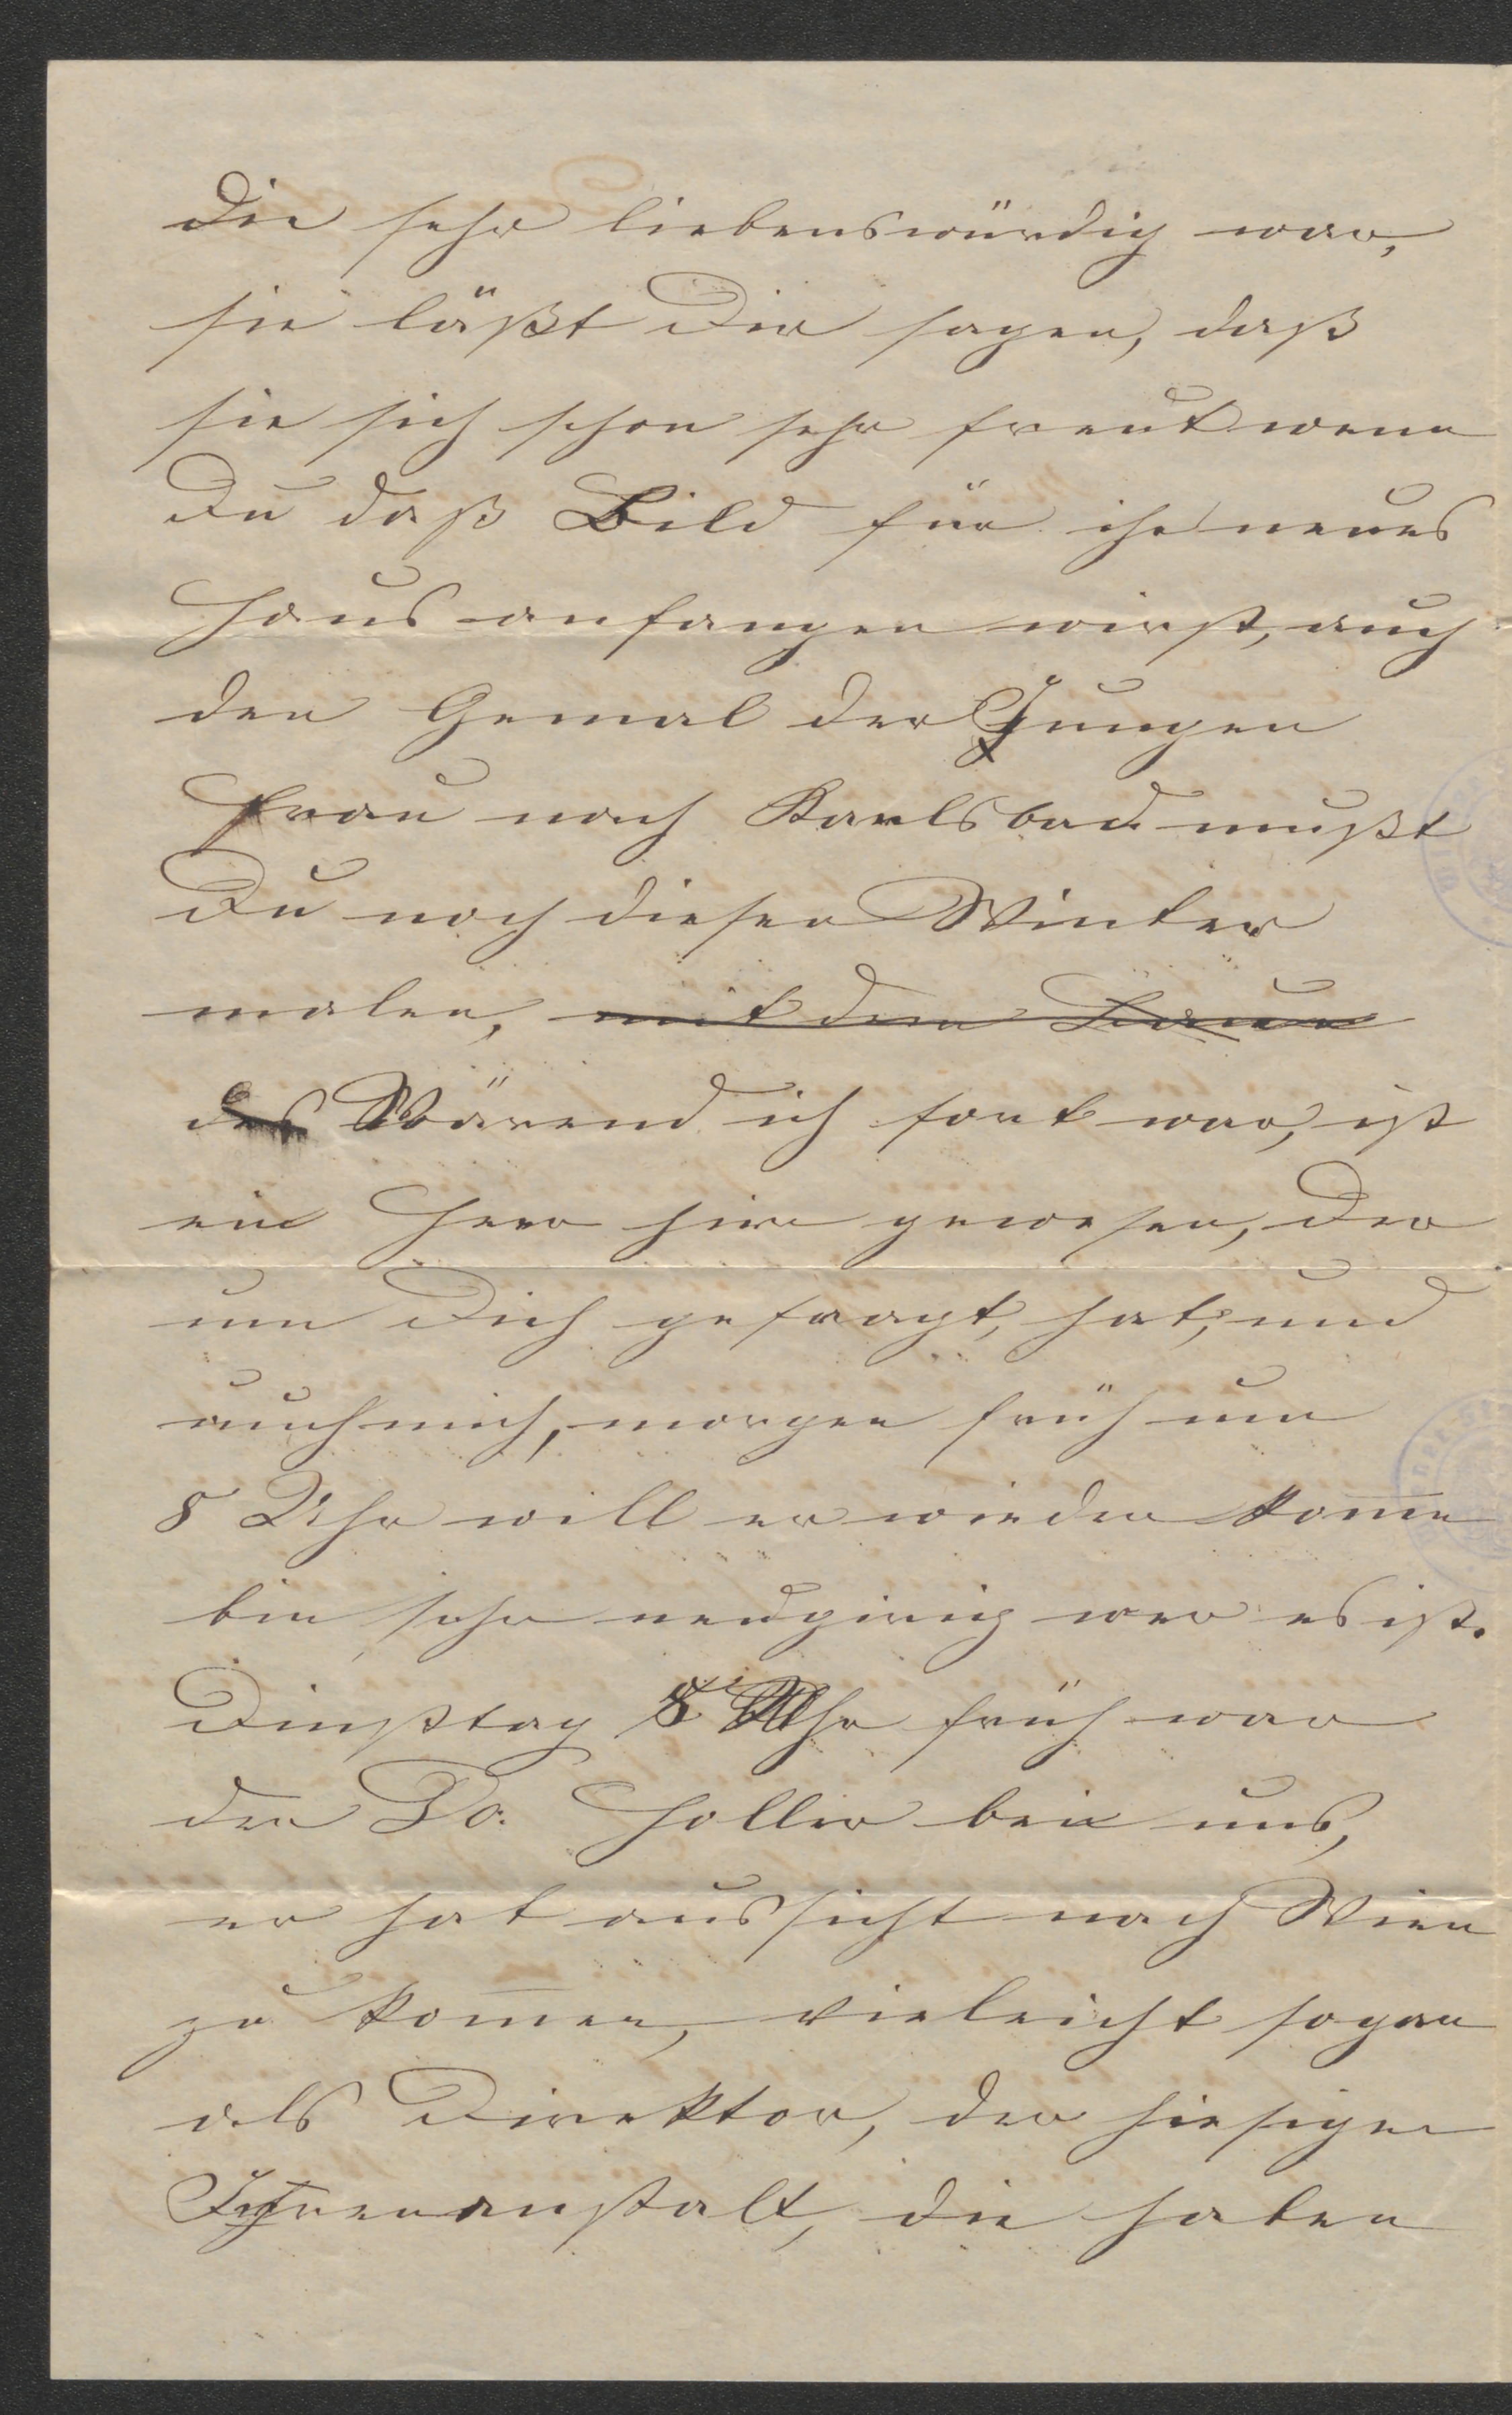 die sehr liebenswürdig war,
sie läßt Dir sagen, daß
sie sich schon sehr freut wenn
Du daß Bild für ihr neues
Haus anfangen wirst, auch
den Gemal der Jungen
Frau nach Karlsbad mußt
Du noch diesen Winter
malen, mit dem
des Wärend ich fort war, ist
ein Herr hir gewesen, der
um Dich gefragt, hat, und
auch mich, morgen früh um
8 Uhr will er wieder kom̄e
bin sehr neugirig wer es ist.
Dinßtag 8 Uhr früh war
der Do. Holler bei uns,
er hat aussicht nach Wien
zu kom̄en, vieleicht sogar
als Direktor, der hiesigen
Irrenanstalt, die haben